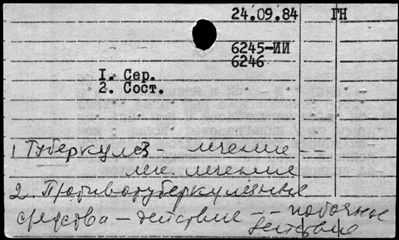 24.09.84 ГН
6245-ИИ
6246
1. Сер.
2. Сост.
1 Туберкулез - лечение
лек. лечение
2. Противотуберкулезные
средства - действие -- побочное
действие